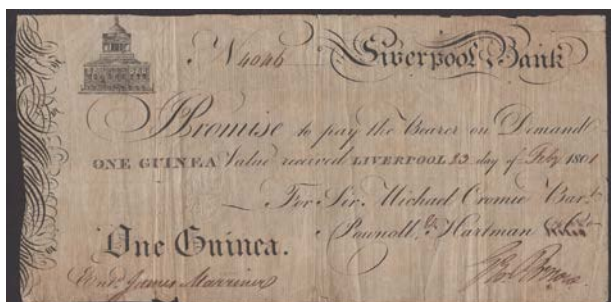 N 4046 Liverpool Bank
I Promise to pay the Bearer on Demand
ONE GUINEA Value received LIVERPOOL 23 day of Feby 1801
For Sir Michael Cromie Bart
Pownoll & Hartman
One Guinea.
Entd James Marriner